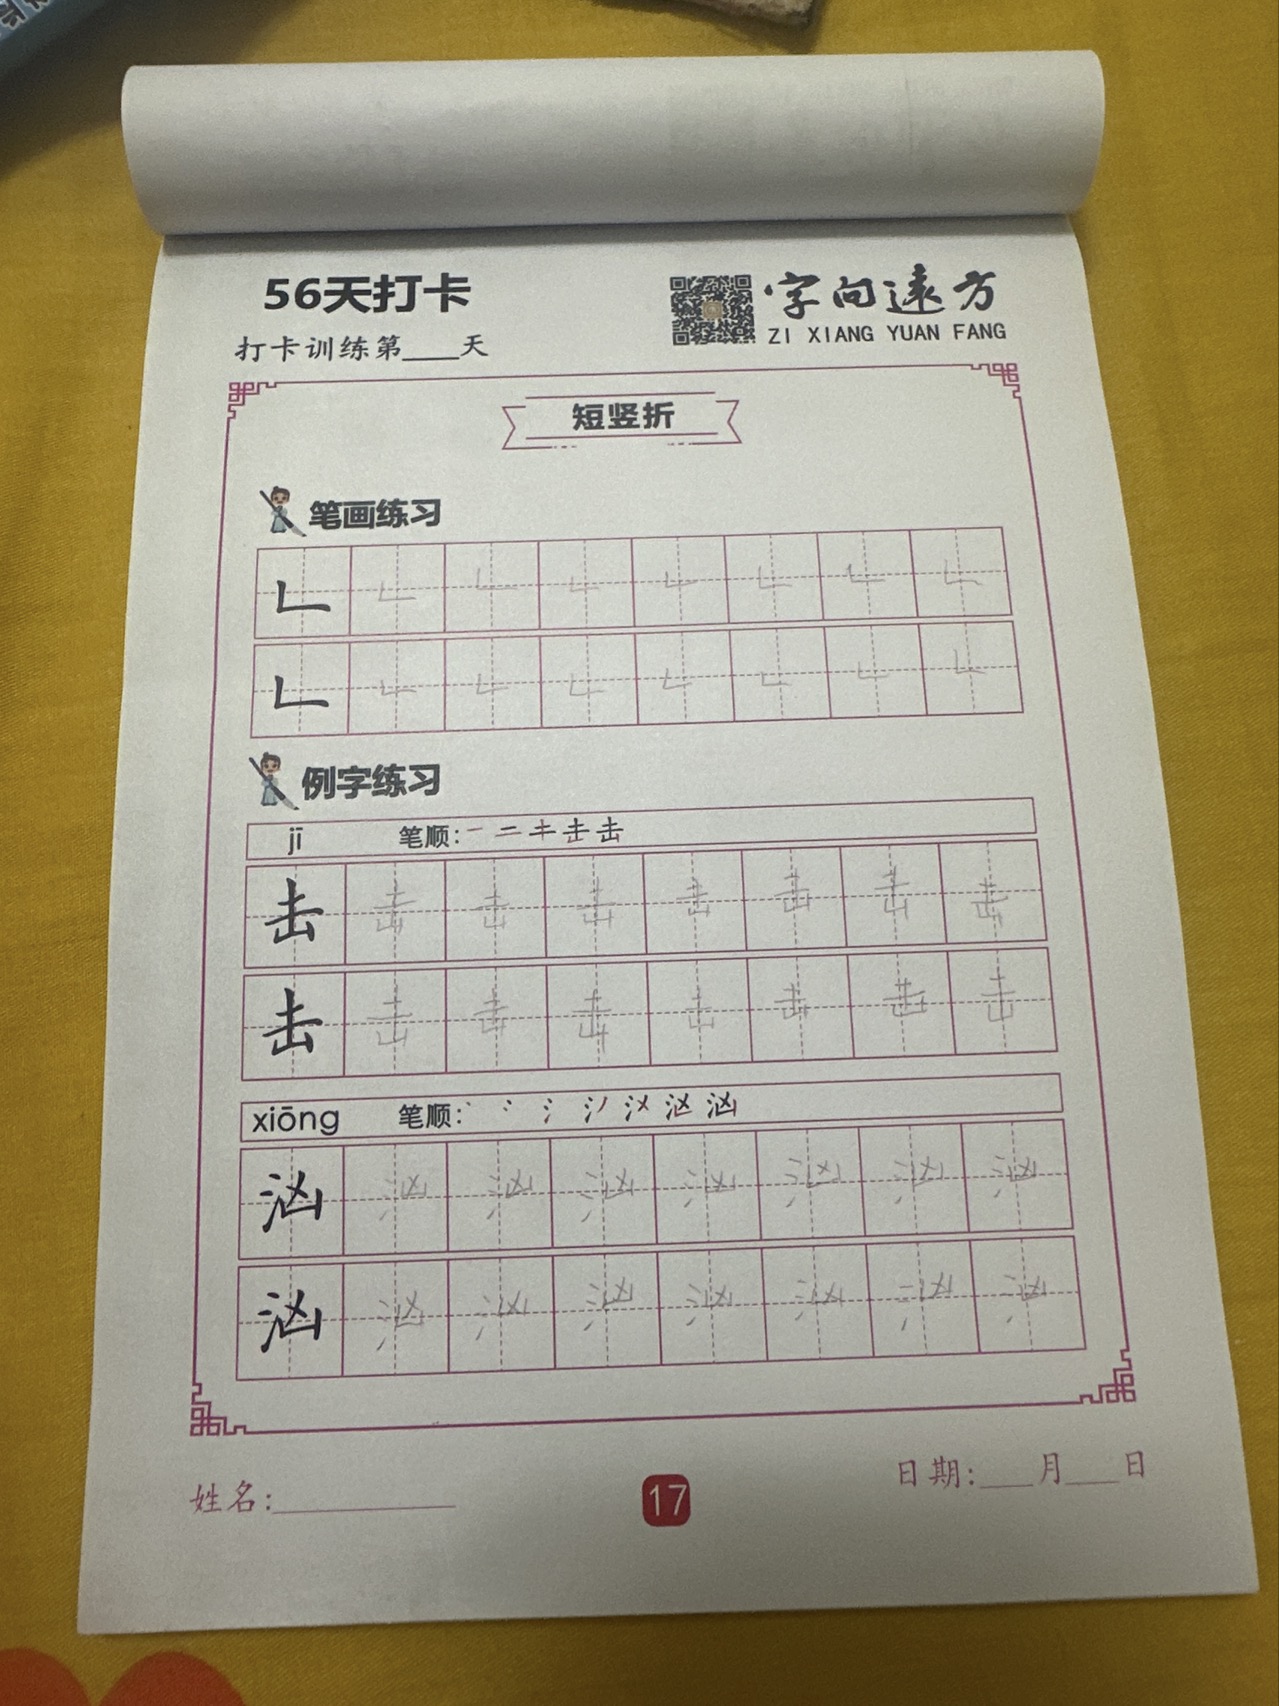 56天打卡
字向遠方
打卡训练第____天
ZI XIANG YUAN FANG
短竖折
笔画练习
例字练习
jī 笔顺:
击 击 击 击 击 击 击 击
击 击 击 击 击 击 击 击
xiōng 笔顺:
汹 汹 汹 汹 汹 汹 汹 汹
汹 汹 汹 汹 汹 汹 汹 汹
姓名:__________
17
日期:___月___日